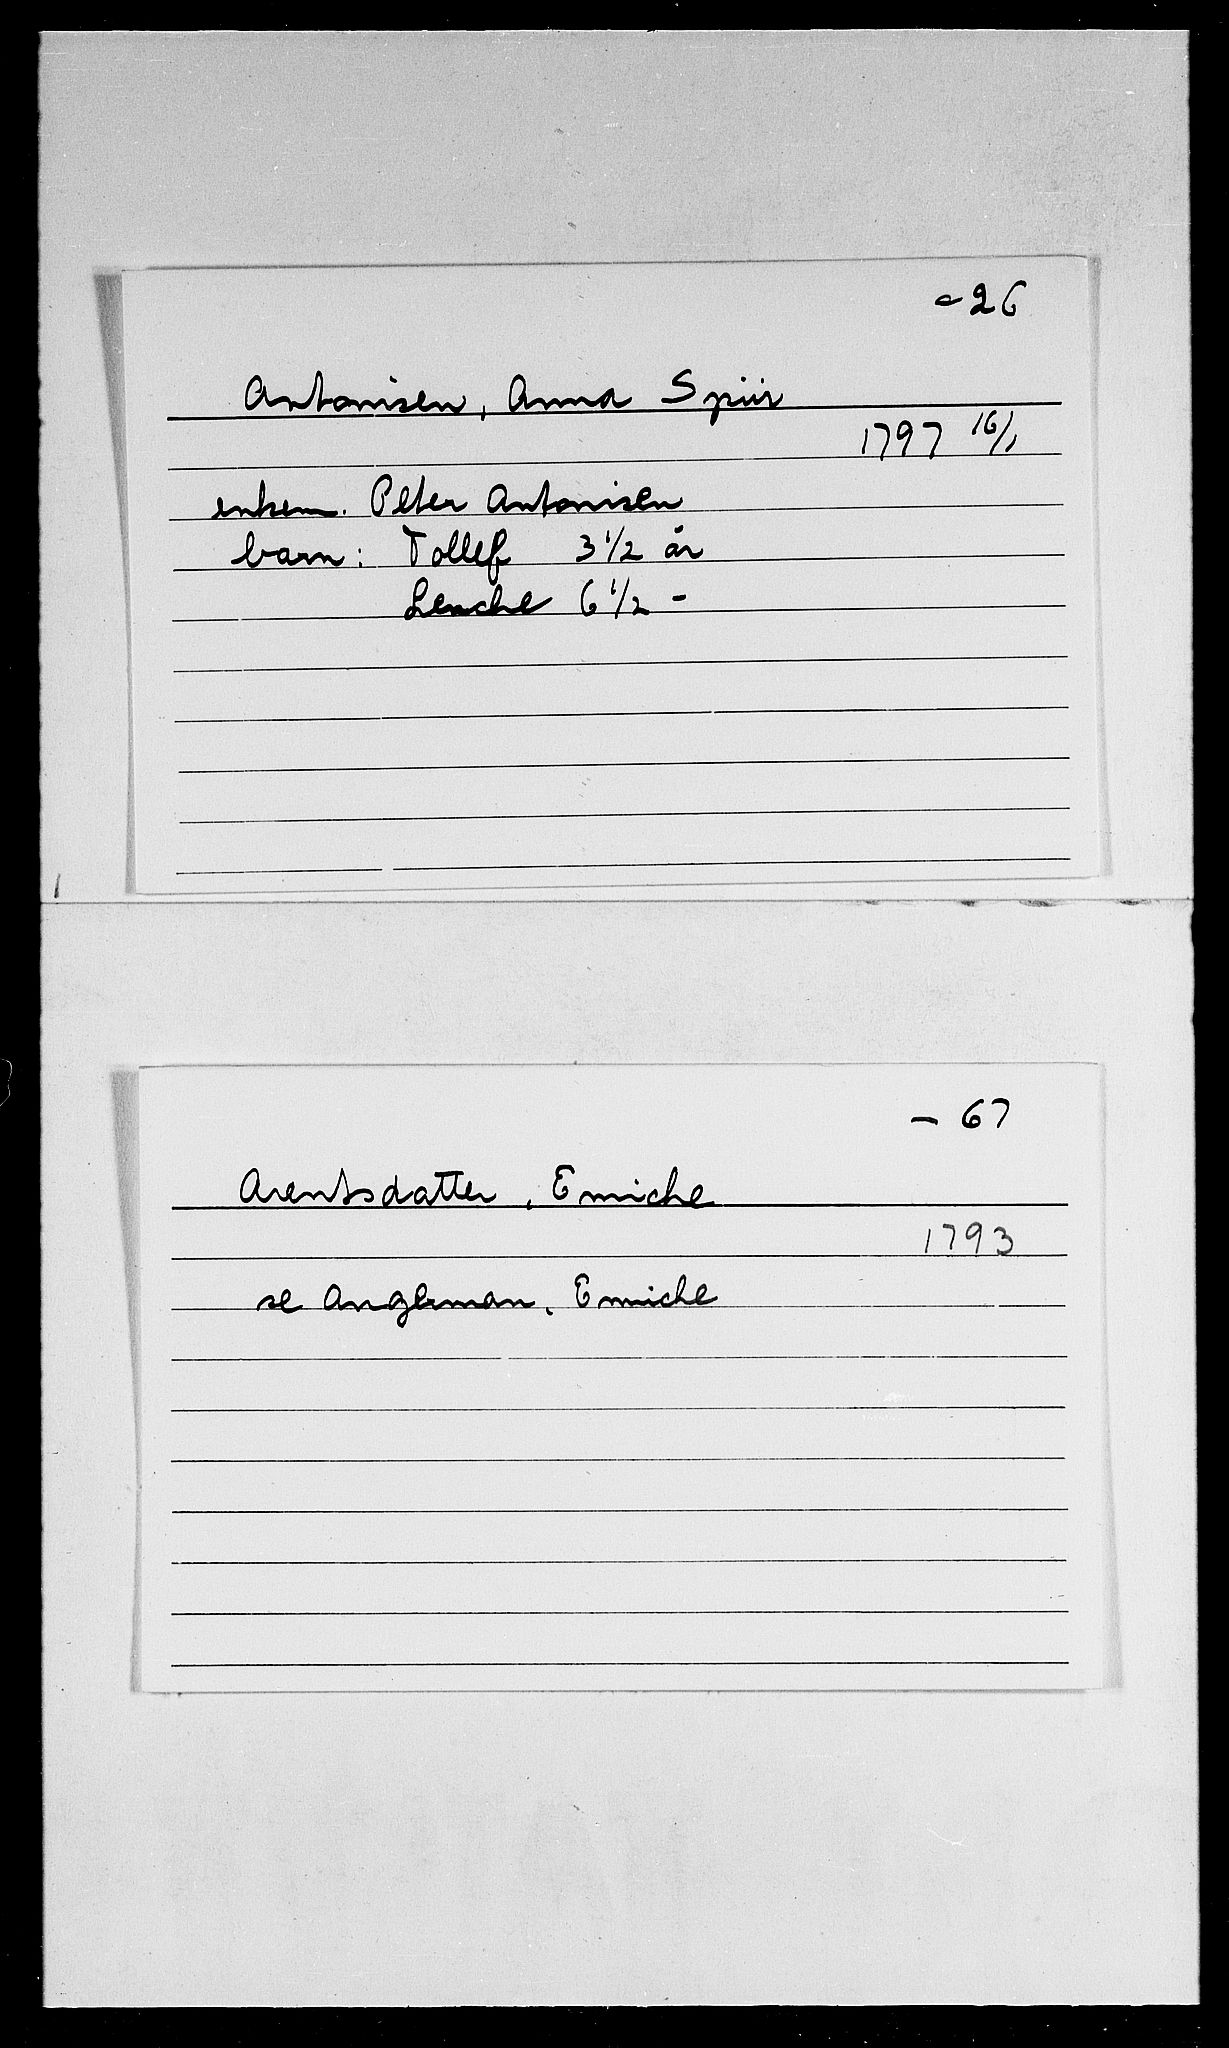 - 26
Antonisen, Anna Spiir
1797 16/1
enkem. Peter Antonisen
barn: Tollef 3 1/2 år
Lenche 6 1/2 -
- 67
Arentsdatter, Emiche
1793
se Angleman, Emiche